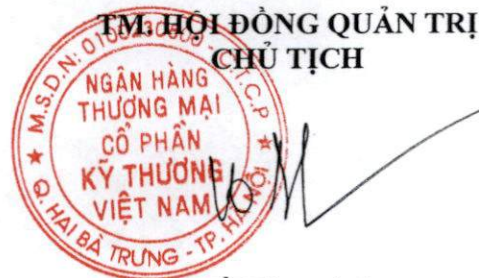 TM. HỘI ĐỒNG QUẢN TRỊ
CHỦ TỊCH
NGÂN HÀNG
THƯƠNG MẠI
CỔ PHẦN
KỸ THƯƠNG
VIỆT NAM
Q. HAI BÀ TRƯNG - TP. HÀ NỘI